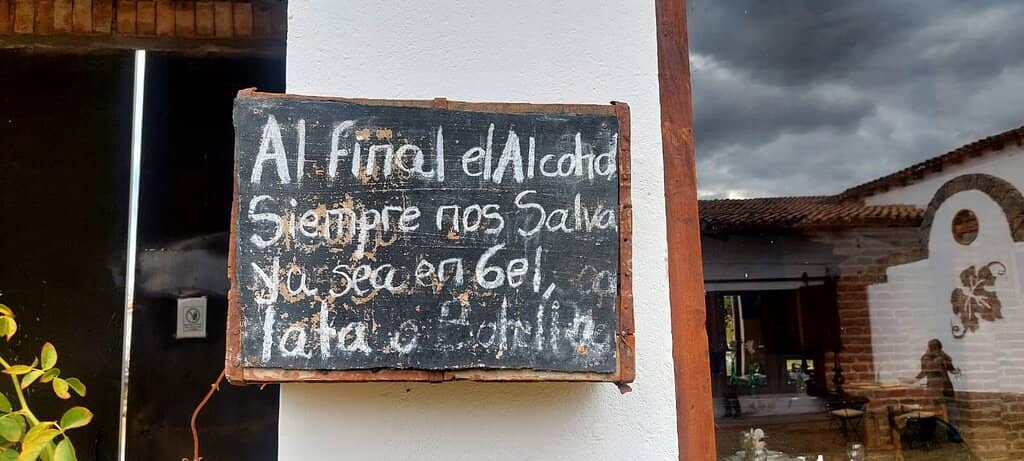 Al Final el Alcohol
Siempre nos Salva
Ya sea en Gel,
lata o Botella